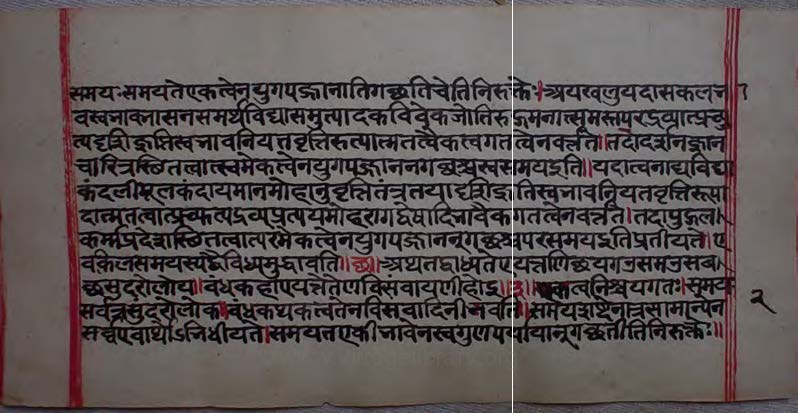 समयः समयत एकत्वेन युगपज्जानाति गच्छति चेति निरुक्तेः। अयं खलु यदा सकल
वस्वभावभासनसमर्थविद्यासमुत्पादकविवेकज्योतिरुद्गमनात्समस्तपरद्रव्यात्प्रच्यु
त्य दृशिज्ञप्तिस्वभावनियतवृत्तिरूपात्मतत्वैकत्वगतत्वेन वर्त्तते। तदा दर्शनज्ञान
चारित्रस्थितत्वात्स्वमेकत्वेन युगपज्जानन् गच्छंश्च स्वसमय इति॥ यदा त्वनाद्यविद्या
कंदलीमूलकंदायमानमोहानुवृत्तितंत्रतया दृशिज्ञप्तिस्वभावनियतवृत्तिरूपा
दात्मतत्वात्प्रच्युत्य परद्रव्यप्रत्ययमोहरागद्वेषादिभावैकगतत्वेन वर्त्तते। तदा पुद्गल
कर्म्मप्रदेशस्थितत्वात्परमेकत्वेन युगपज्जानन् गच्छंश्च परसमय इति प्रतीयते। ए
वं किल समयस्य द्वैविध्यमुद्धावति॥ छ॥ अथैतद्बाध्यते एयत्तणिच्छयगउ समउ सव्व
च्छ सुंदरो लोय। बंधकहा एयत्ते तेण विसंवायणी होइ॥३॥ एकत्वनिश्चयगतः। समय
सर्वत्र सुंदरो लोके। बंधकथैकत्वे तेन विसंवादिनी भवति। समयशब्देनात्र सामान्येन
सर्व्व एवार्थोऽभिधीयते। समयत एकीभावेन स्वगुणपर्यायान् गच्छतीति निरुक्तेः॥
२